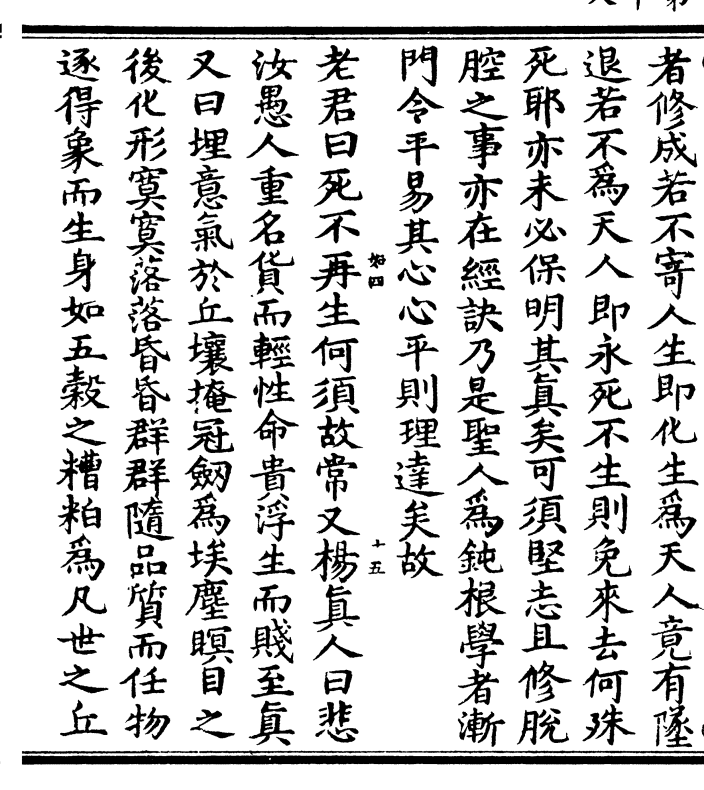 者修成若不寄人生即化生爲天人竟有墜
退若不爲天人即永死不生則免來去何殊
死耶亦未必保明其眞矣可須堅志且修脫
腔之事亦在經訣乃是聖人爲鈍根學者漸
門令平易其心心平則理達矣故
老君曰死不再生何須故常又楊眞人曰悲
汝愚人重名貨而輕性命貴浮生而賤至眞
又曰埋意氣於丘壤掩冠劒爲埃塵瞑目之
後化形寞寞落落昏昏群群隨品質而任物
逐得象而生身如五穀之糟粕爲凡世之丘
十五